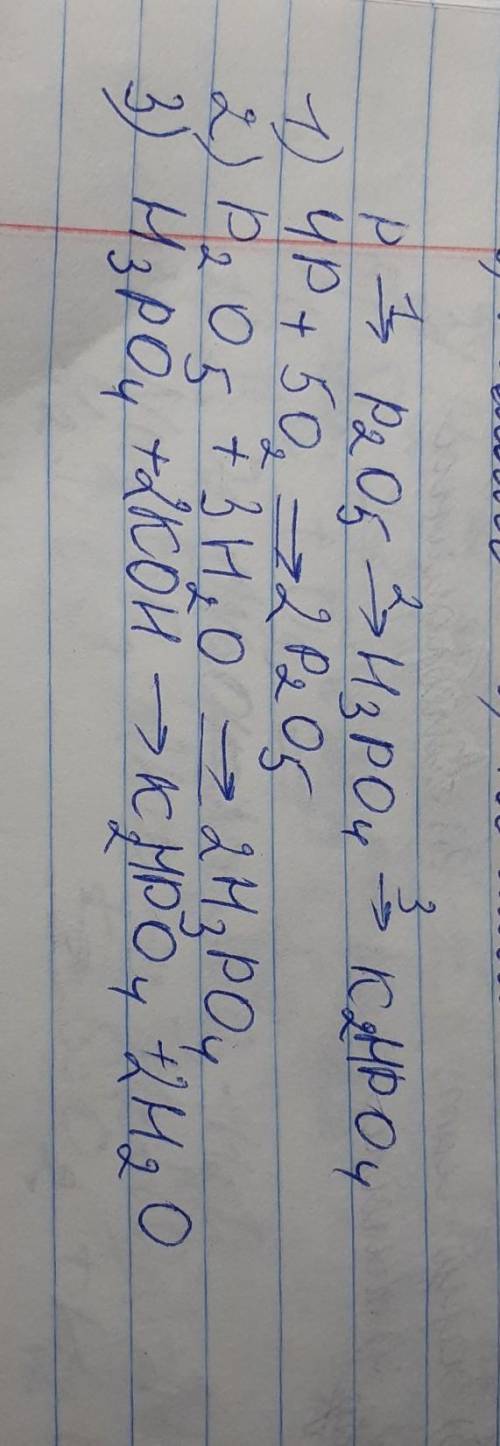 P →¹ P₂O₅ →² H₃PO₄ →³ K₂HPO₄
1) 4P + 5O₂ → 2P₂O₅
2) P₂O₅ + 3H₂O → 2H₃PO₄
3) H₃PO₄ + 2KOH → K₂HPO₄ + 2H₂O